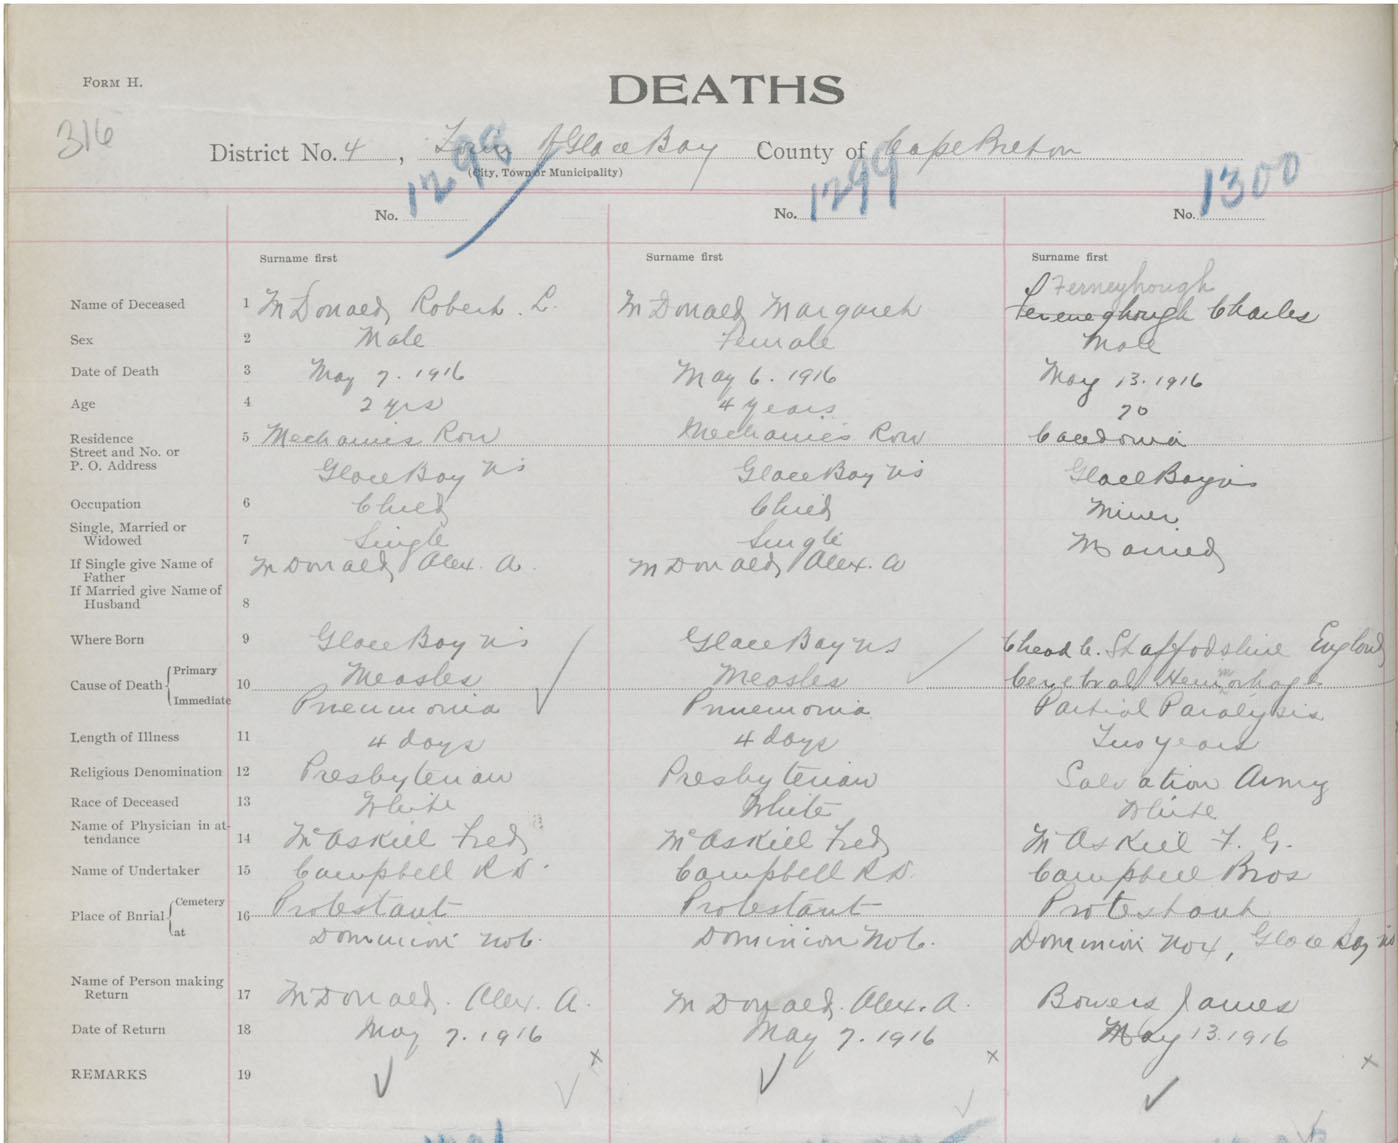 FORM H.
DEATHS
316
District No. 4, Town of Glace Bay County of Cape Breton
(City, Town or Municipality)
No. 1298 No. 1299 No. 1300
Surname first Surname first Surname first
Ferneyhough
Name of Deceased 1 McDonald, Robert. L. McDonald, Margaret Ferneyhough Charles
Sex 2 Male Female Male
Date of Death 3 May 7. 1916 May 6. 1916 May 13. 1916
Age 4 2 yrs 4 years 70
Residence 5 Mechanics Row Mechanics Row Caledonia
Street and No. or
P. O. Address Glace Bay NS Glace Bay NS Glace Bay NS
Occupation 6 Child Child Miner
Single, Married or
Widowed 7 Single Single Married
If Single give Name of McDonald, Alex. A. McDonald, Alex. A
Father
If Married give Name of
Husband 8
Where Born 9 Glace Bay NS Glace Bay NS Cheadle. Staffodshire England
Cause of Death Primary 10 Measles Measles Cerebral Hemorhage
Immediate Pneumonia Pnuemonia Partial Paralysis
Length of Illness 11 4 days 4 days Two years
Religious Denomination 12 Presbyterian Presbyterian Salvation Army
Race of Deceased 13 White White White
Name of Physician in at-
tendance 14 McAskill Fred McAskill Fred McAskill F. G.
Name of Undertaker 15 Campbell R.D. Campbell R.D. Campbell Bros
Place of Burial Cemetery 16 Protestant Protestant Protestant
at Dominion No 6. Dominion No 6. Dominion No 4, Glace Bay NS
Name of Person making
Return 17 McDonald. Alex. A. McDonald. Alex. A. Bowers James
Date of Return 18 May 7. 1916 May 7. 1916 May 13. 1916
REMARKS 19